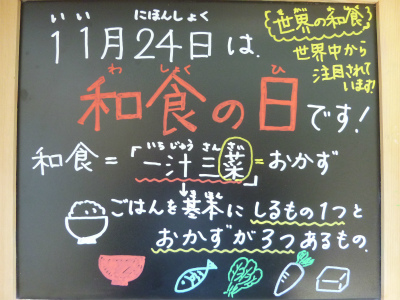 いい にほんしょく
11月24日は、
世界の和食
世界中から
注目されて
います!
わ しょく ひ
和食の日です!
いちじゅう さん さい
和食=「一汁三菜」=おかず
↓
ごはんを基本にしるもの1つと
おかずが3つあるもの。